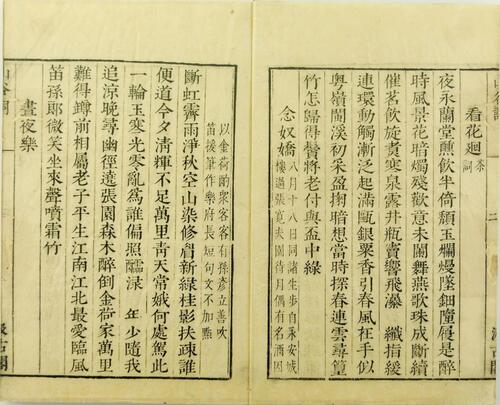 看花迴 茶詞
夜永蘭堂醺飲半倚頹玉爛熳墜鈿墮履是醉
時風景花暗燭殘歡意未闌舞燕歌珠成斷續
催茗飲旋煮寒泉露井瓶竇響飛瀑 纖指緩
連環動觸漸泛起滿甌銀粟香引春風在手似
粵嶺閩溪初采盈掬暗想當時探春連雲尋篁
竹怎歸得鬢將老付與盃中綠
念奴嬌 八月十八日同諸生步自永安城
樓過張寬夫園待月偶有名酒因
以金荷酌衆客客有孫彥立善吹
笛援筆作樂府長短句文不加點
斷虹霽雨淨秋空山染修眉新綠桂影扶疎誰
便道今夕清輝不足萬里青天常娥何處駕此
一輪玉寒光零亂爲誰偏照醽淥 年少隨我
追涼晚尋幽徑遶張園森木醉倒金荷家萬里
難得罇前相屬老子平生江南江北最愛臨風
笛孫郎微笑坐來聲噴霜竹
晝夜樂